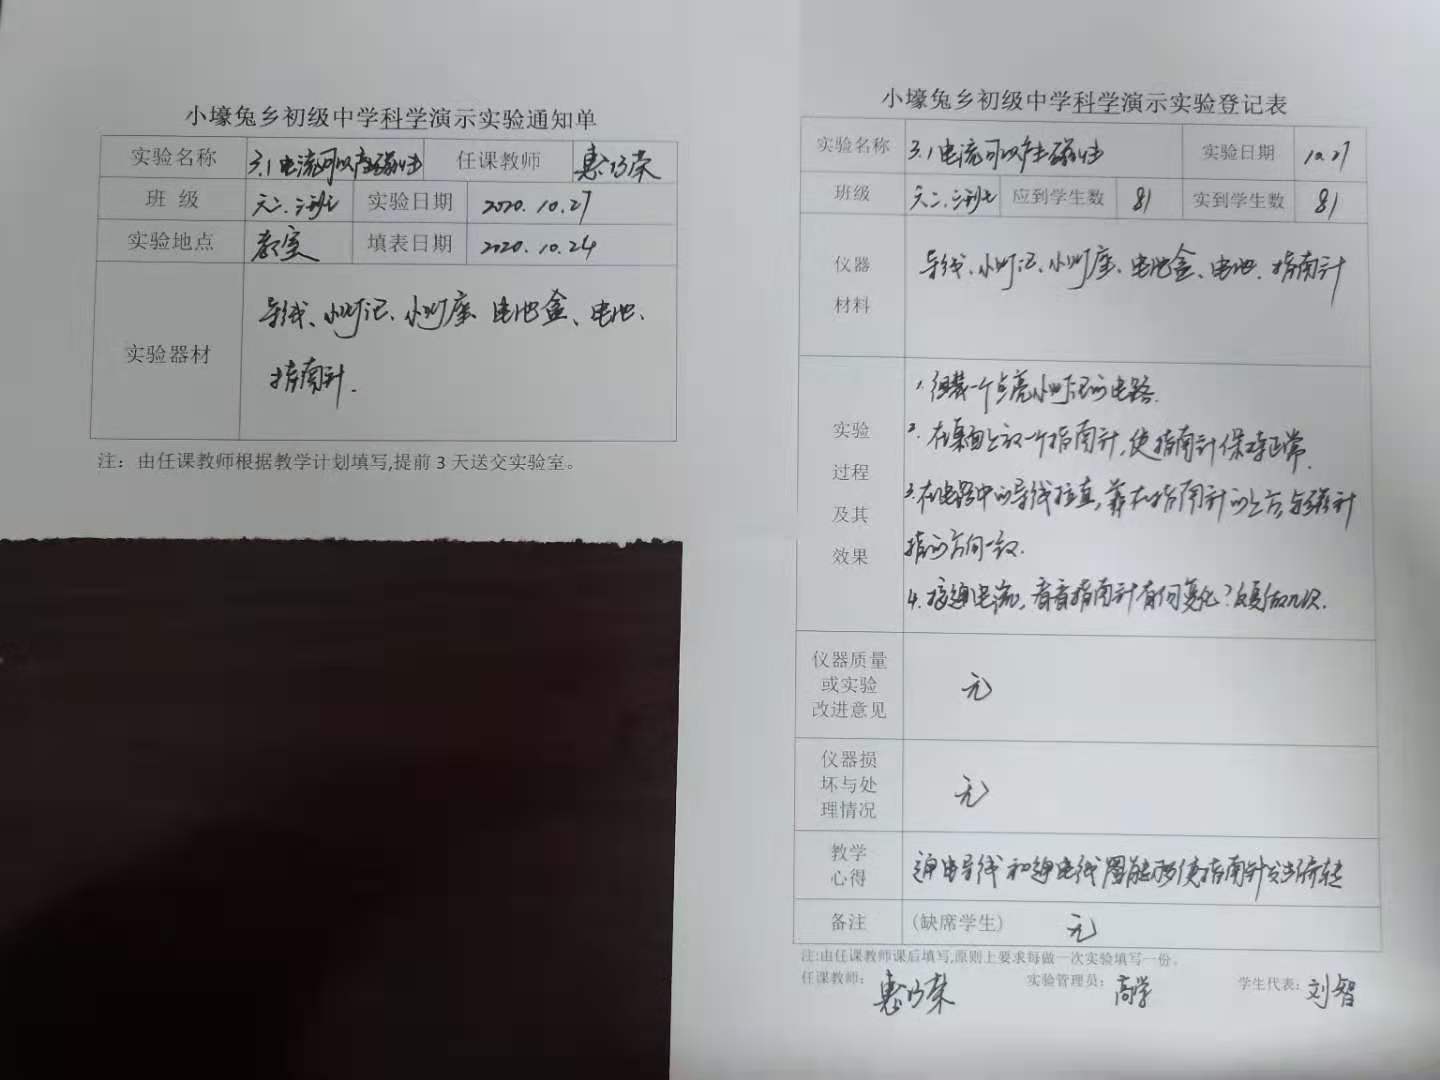 小壕兔乡初级中学科学演示实验通知单
实验名称 3.1电流可以产生磁性 任课教师 惠巧荣
班 级 实验日期 2020.10.27
实验地点 教室 填表日期 2020.10.24
实验器材
导线、小灯泡、小灯座 电池盒、电池、
指南针.
注：由任课教师根据教学计划填写,提前 3 天送交实验室。
小壕兔乡初级中学科学演示实验登记表
实验名称 3.1电流可以产生磁性 实验日期 10.27
班级 应到学生数 81 实到学生数 81
仪器
材料
导线、小灯泡、小灯座、电池盒、电池、指南针
实验
过程
及其
效果
1.组装一个点亮小灯泡的电路.
2.在桌面上放一个指南针,使指南针保持正常.
3.在电路中的导线拉直,靠在指南针的上方,与磁针
指的方向一致.
4.接通电流,看看指南针有何变化?反复做几次.
仪器质量
或实验
改进意见
无
仪器损
坏与处
理情况
无
教学
心得
通电导线和通电线圈能够使指南针发生偏转
备注 (缺席学生) 无
注:由任课教师课后填写,原则上要求每做一次实验填写一份。
任课教师: 惠巧荣 实验管理员: 高学 学生代表: 刘智